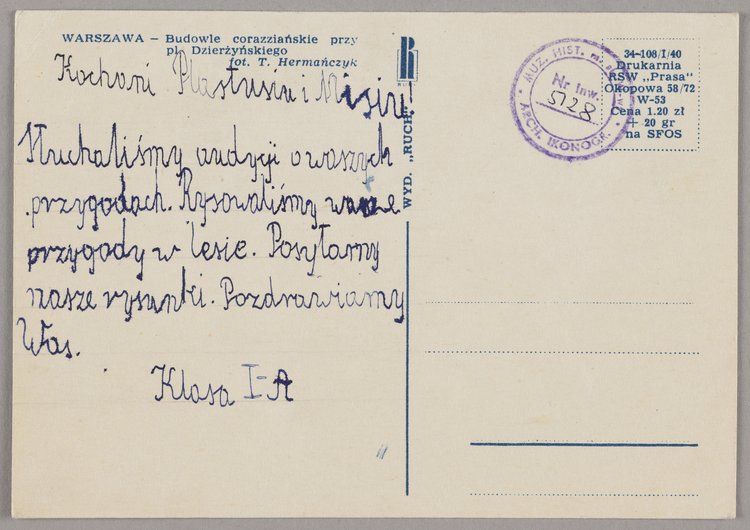 WARSZAWA – Budowle corazziańskie przy
pl. Dzierżyńskiego
fot. T. Hermańczyk
Kochani Plastusiu i Misiu!
Słuchaliśmy audycji o waszych
przygodach. Rysowaliśmy wasze
przygody w lesie. Posyłamy
nasze rysunki. Pozdrawiamy
Was.
Klasa I-A
WYD. „RUCH"
MUZ. HIST.
Nr inw.
5128
ARCH. IKONOGR.
34-108/I/40
Drukarnia
RSW „Prasa"
Okopowa 58/72
W-53
Cena 1.20 zł
+ 20 gr
na SFOS